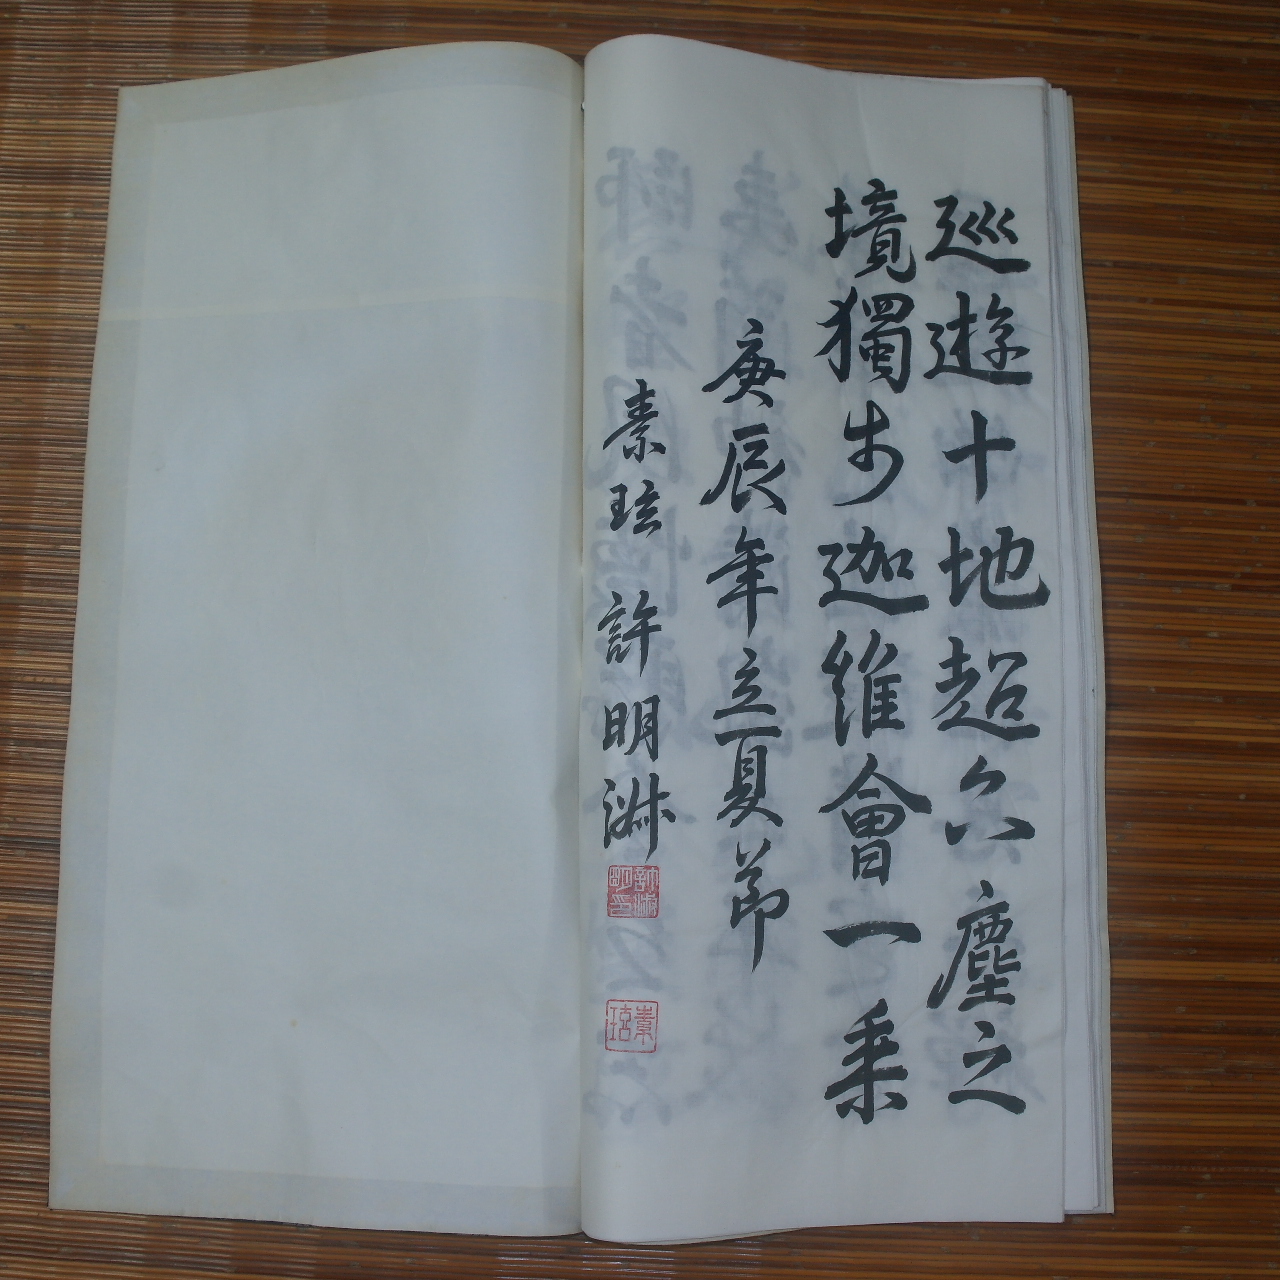 巡遊十地超六塵之
境獨步迦維會一乘
庚辰年立夏節
素玹 許明
素玹